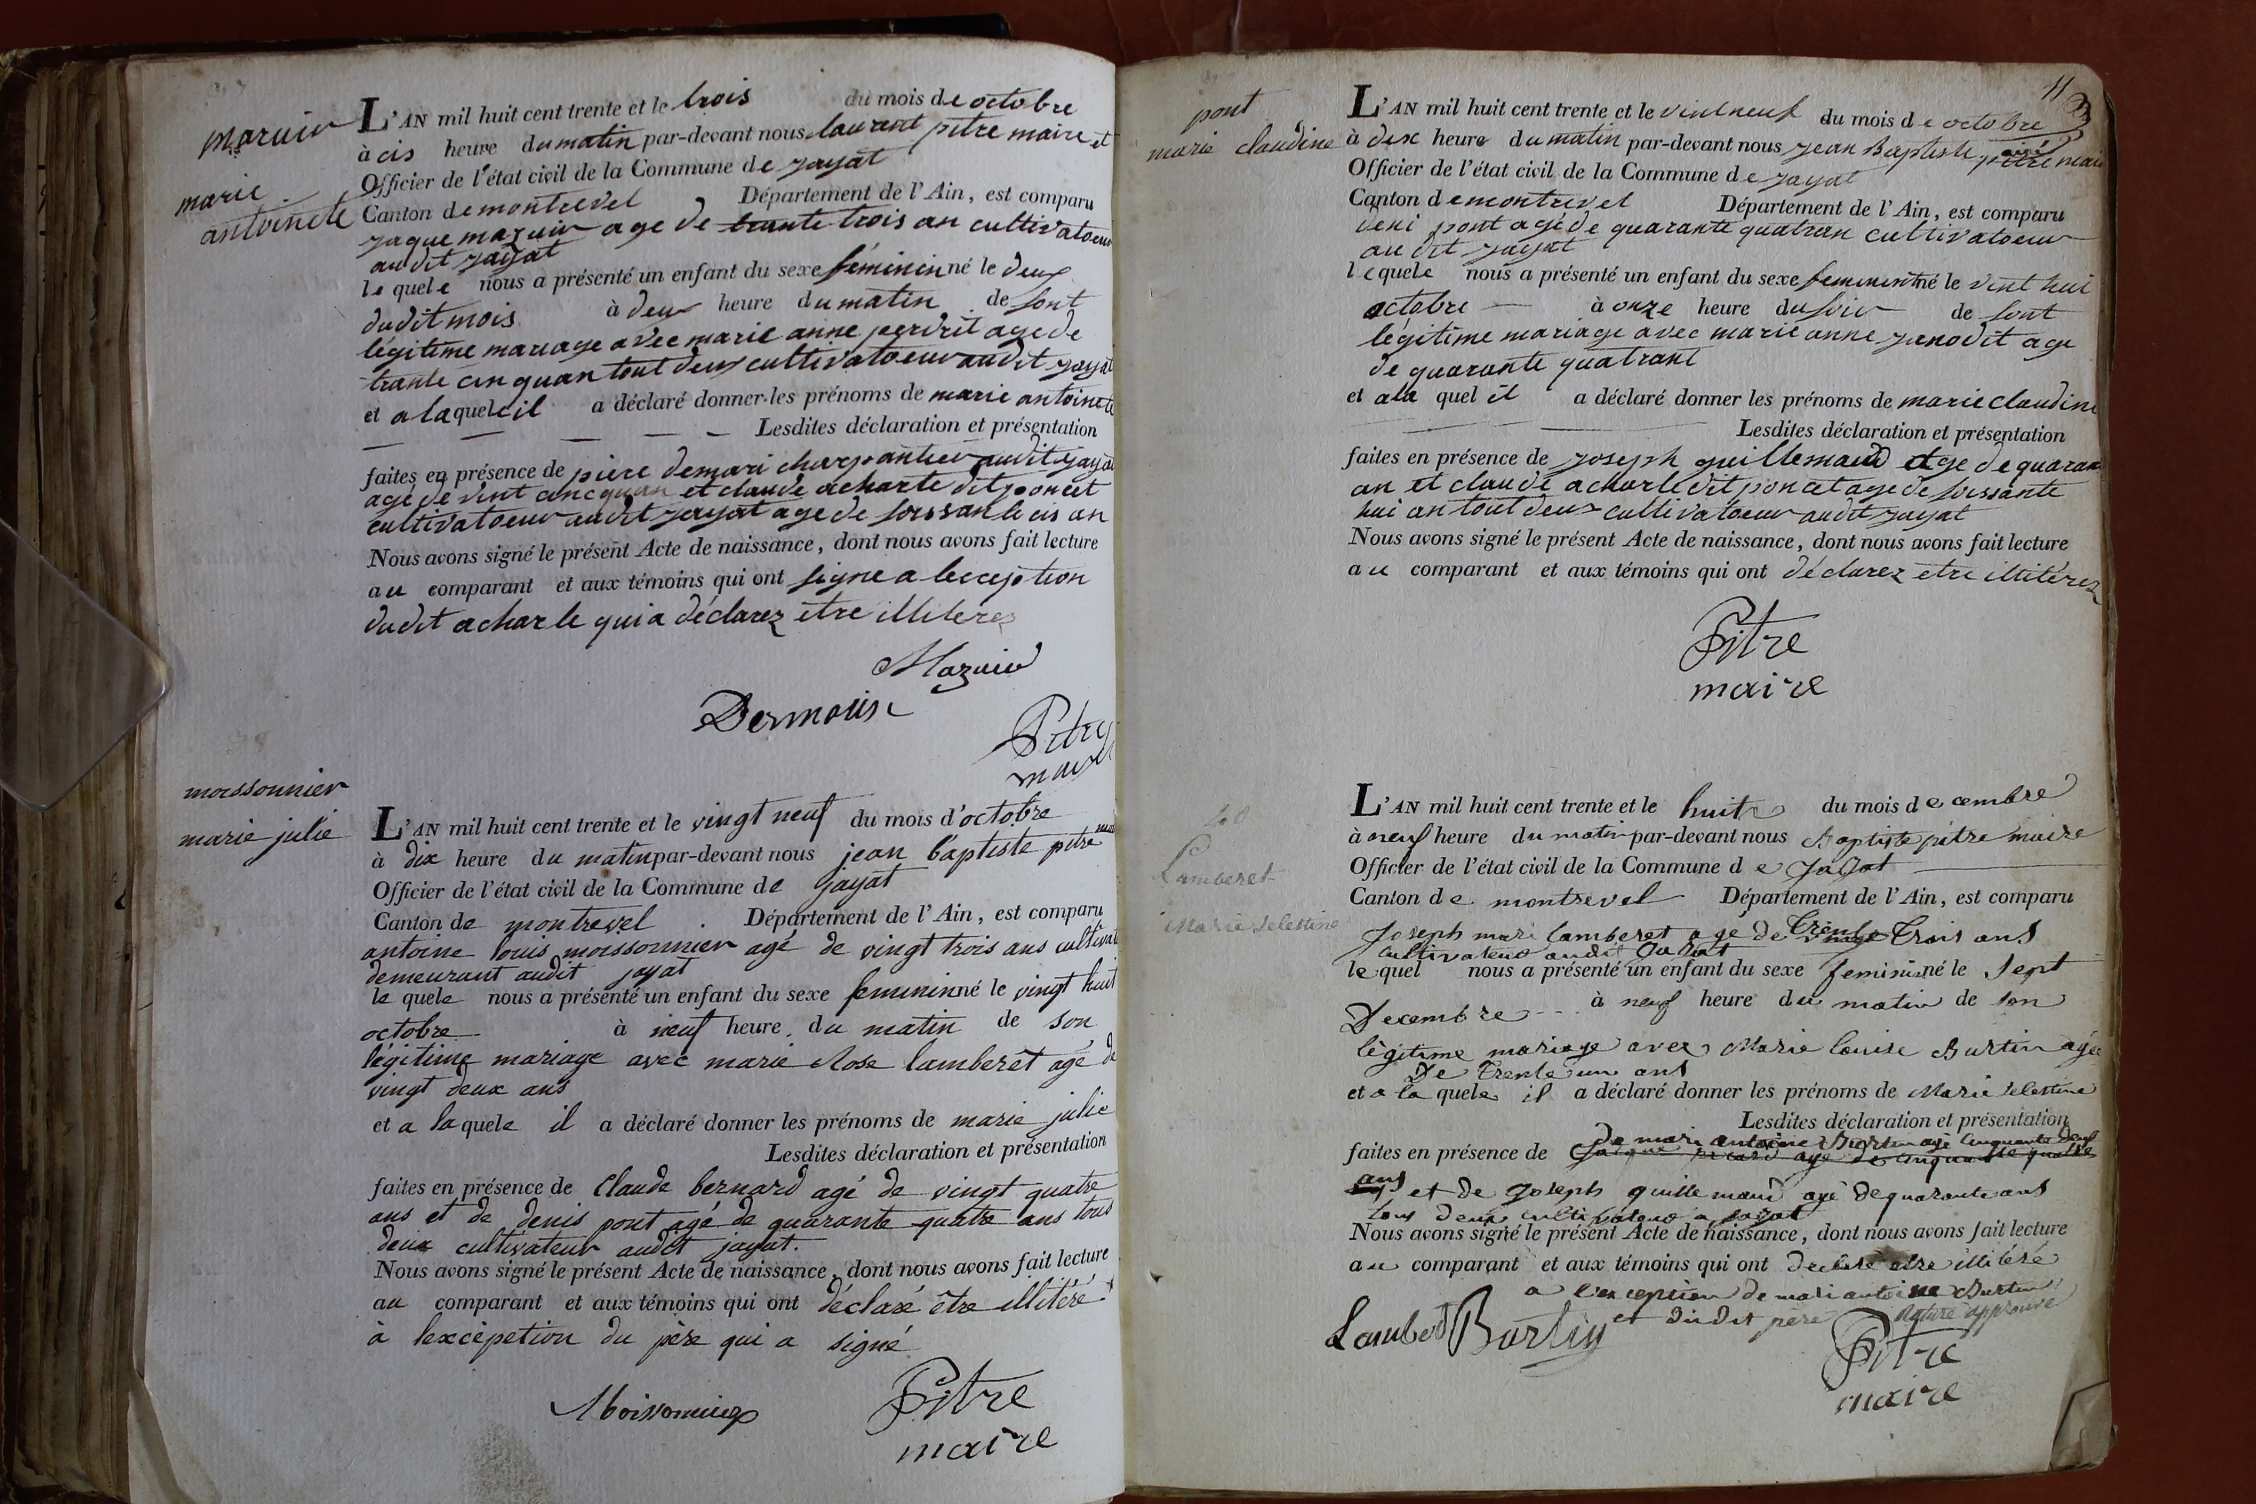 mazuir
marie
antoinete
L'AN mil huit cent trente et le trois du mois de octobre
à cis heure du matin par-devant nous laurant pitre maire et
Officier de l'état civil de la Commune de jayat
Canton de montrevel Département de l'Ain, est comparu
jaque mazuir age de trante trois an cultivatoeur
au dit jayat
le quele nous a présenté un enfant du sexe féminin né le deux
dudit mois à deux heure du matin de sont
légitime mariage avec marie anne perdrit age de
trante cin quan tout deux cultivatoeur audit jayat
et a la quele il a déclaré donner les prénoms de marie antoinete
Lesdites déclaration et présentation
faites en présence de piere demari charpantier audit jayat
age de vint cinc quan et claude acharle dit poncet
cultivatoeur audit jayat age de soissante cis an
Nous avons signé le présent Acte de naissance, dont nous avons fait lecture
au comparant et aux témoins qui ont signe a lecception
dudit acharle qui a déclarez etre illiterez
Mazuir
Pitre
maire
moissonnier
marie julie
L'AN mil huit cent trente et le vingt neuf du mois d'octobre
à dix heure du matin par-devant nous jean baptiste pitre mai
Officier de l'état civil de la Commune de jayat
Canton de montrevel Département de l'Ain, est comparu
antoine louis moissonnier agé de vingt trois ans cultivat
demeurant audit jayat
le quele nous a présenté un enfant du sexe feminin né le vingt huit
octobre à neuf heure du matin de son
légitime mariage avec marie Rose lamberet agé de
vingt deux ans
et a la quele il a déclaré donner les prénoms de marie julie
Lesdites déclaration et présentation
faites en présence de Claude bernard agé de vingt quatre
ans et de denis pont agé de quarante quatre ans tous
deux cultivateur audit jayat.
Nous avons signé le présent Acte de naissance, dont nous avons fait lecture
au comparant et aux témoins qui ont déclaré être illitéré
à lexcépetion du père qui a signé
Moissonnier
Pitre
maire
11
pont
marie claudine
L'AN mil huit cent trente et le vint neuf du mois de octobre
à dix heure du matin par-devant nous jean Baptiste pitre maire
Officier de l'état civil de la Commune de jayat
Canton de montrevel Département de l'Ain, est comparu
deni pont agé de quarante quatran cultivatoeur
au dit jayat
le quele nous a présenté un enfant du sexe feminint né le vint hui
octobre à onze heure du soir de sont
legitime mariage avec marie anne janodit age
de quarante quatrant
et a la quel il a déclaré donner les prénoms de marie claudine
Lesdites déclaration et présentation
faites en présence de joseph guillemaud age de quaran
an et claude acharle dit poncet age de soissante
hui an tout deux cultivatoeur audit jayat
Nous avons signé le présent Acte de naissance, dont nous avons fait lecture
au comparant et aux témoins qui ont déclarez etre illitérez
Pitre
maire
Lamberet
Marie Selestine
L'AN mil huit cent trente et le huit du mois de cembre
à neuf heure du matin par-devant nous Baptiste pitre maire
Officier de l'état civil de la Commune de Jayat
Canton de montrevel Département de l'Ain, est comparu
Joseph mari lamberet agé de Trente Trois ans
Cultivateur audit Jayat
le quel nous a présenté un enfant du sexe feminin né le Sept
Decembre à neuf heure du matin de son
légitime mariage avec Marie louise Burtin agée
De Trente un ans
et a la quele il a déclaré donner les prénoms de Marie Selestine
Lesdites déclaration et présentation
De mari antoine Burtin agé Cinquante Deux
faites en présence de Jaique picard age de cinquante quatre
ans et de Joseph guillemaud agé de quarante ans
tous deux cultivateur a jayat
Nous avons signé le présent Acte de naissance, dont nous avons fait lecture
au comparant et aux témoins qui ont declaré etre illitéré
a l'exception de mari antoine Burtin
et dudit pere Rature approuvé
Lamberet Burtin
Pitre
maire